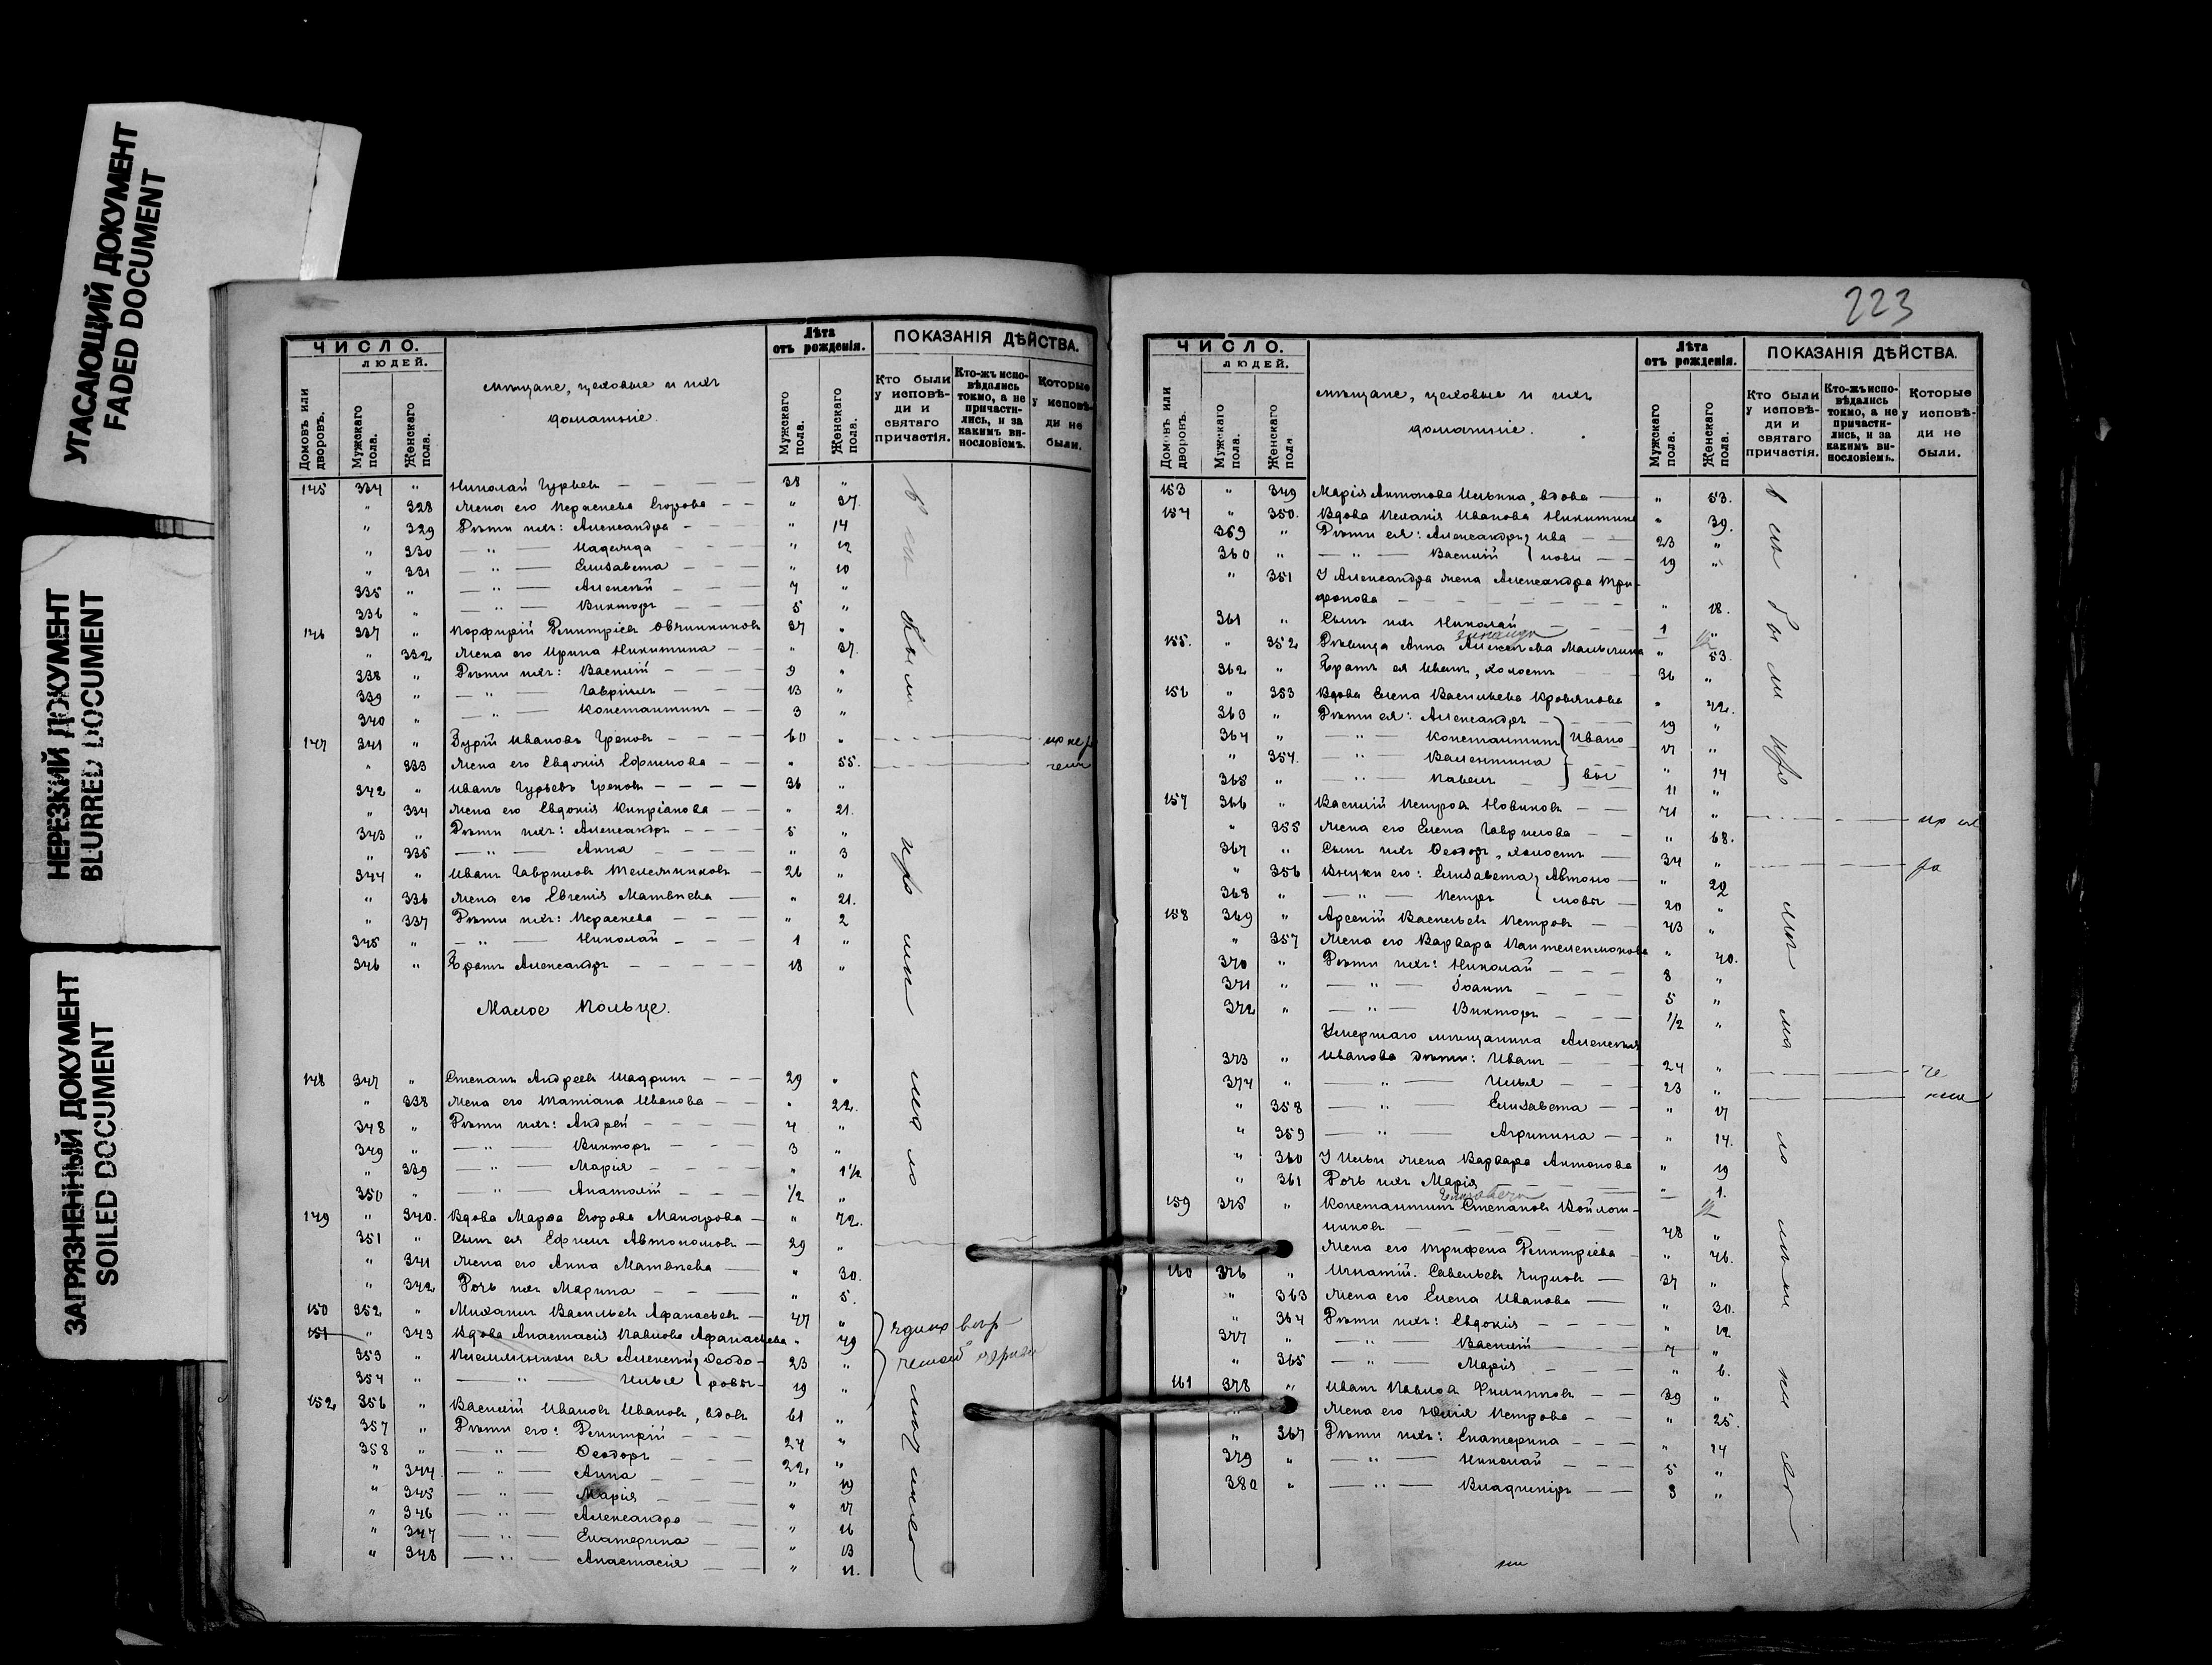 УГАСАЮЩИЙ ДОКУМЕНТ
FADED DOCUMENT
НЕРЕЗКИЙ ДОКУМЕНТ
BLURRED DOCUMENT
ЗАГРЯЗНЕННЫЙ ДОКУМЕНТ
SOILED DOCUMENT
ЧИСЛО.
ЛЮДЕЙ.
Домовъ или дворовъ.
Мужскаго пола.
Женскаго пола.
мѣщане, цеховые и ихъ
домашніе.
Лѣта отъ рожденія.
Мужскаго пола.
Женскаго пола.
ПОКАЗАНІЯ ДѢЙСТВА.
Кто были у исповѣди и святаго причастія.
Кто-жъ исповѣдались токмо, а не причастились, и за какимъ винословіемъ.
Которые у исповѣди не были.
145 334 " Николай Гурьевъ 38 "
" 328 Жена его Параскева Егорова " 37.
" 329 Дѣти ихъ: Александра " 14
" 330 — " — Надежда " 12
" 331 — " — Елисавета " 10
335 " — " — Алексѣй 7 "
336 " — " — Викторъ 5 "
146 337 " Порфирій Димитріевъ Овчинниковъ 37 "
" 332 Жена его Ирина Никитина " 37.
338 " Дѣти ихъ: Василій 9 "
339 " — " — Гавріилъ 13 "
340 " — " — Константинъ 3 "
147 341 " Гурій Ивановъ Грековъ 60 "
" 333 Жена его Евдокія Ефимова " 55.
342 " Иванъ Гурьевъ Грековъ 36 "
" 334 Жена его Евдокія Кипріанова " 21.
343 " Дѣти ихъ: Александръ 5 "
" 335 — " — Анна " 3
344 " Иванъ Гавриловъ Тележниковъ 26 "
" 336 Жена его Евгенія Матвѣева " 21.
" 337 Дѣти ихъ: Параскева " 2
345 " — " — Николай 1 "
346 " Братъ Александръ 18 "
Малое Кольце.
148 347 " Степанъ Андреевъ Шадринъ 29 "
" 338 Жена его Татіана Иванова " 22.
348 " Дѣти ихъ: Андрей 4 "
349 " — " — Викторъ 3 "
" 339 — " — Марія " 1½
350 " — " — Анатолій ½ "
149 " 340. Вдова Марѳа Егорова Макарова " 72.
351 " Сынъ ея Ефимъ Автономовъ 29 "
" 341 Жена его Анна Матвѣева " 30.
" 342 Дочь ихъ Марина " 5.
150 352 " Михаилъ Васильевъ Афанасьевъ 47 "
151 " 343 Вдова Анастасія Павлова Афанасьева " 49
353 " Племянники ея Алексѣй Ѳеодо- 23 "
354 " — " — Илья ровы 19 "
152 356 " Василій Ивановъ Ивановъ, вдовъ 61 "
357 " Дѣти его: Димитрій 24 "
358 " — " — Ѳеодоръ 22, "
" 344 — " — Анна " 19
" 345 — " — Марія " 17
" 346 — " — Александра " 16
" 347 — " — Екатерина " 13
" 348 — " — Анастасія " 11.
223
ЧИСЛО.
ЛЮДЕЙ.
Домовъ или дворовъ.
Мужскаго пола.
Женскаго пола.
мѣщане, цеховые и ихъ
домашніе.
Лѣта отъ рожденія.
Мужскаго пола.
Женскаго пола.
ПОКАЗАНІЯ ДѢЙСТВА.
Кто были у исповѣди и святаго причастія.
Кто-жъ исповѣдались токмо, а не причастились, и за какимъ винословіемъ.
Которые у исповѣди не были.
153 " 349 Марія Антонова Ильина, вдова " 53.
154 " 350. Вдова Пелагія Иванова Никитина " 39.
369 " Дѣти ея: Александръ Ива 23 "
360 " — " — Василій новы 19 "
" 351 У Александра жена Александра Три-
фонова " 18.
361 " Сынъ ихъ Николай 1 "
155. " 352 Дѣвица Анна Алексѣева Малыгина " 53.
362 " Братъ ея Иванъ, холостъ 36 "
156 " 353 Вдова Елена Васильева Кровякова " 42.
363 " Дѣти ея: Александръ 19 "
364 " — " — Константинъ Ивано 17 "
" 354. — " — Валентина " 14
365 " — " — Павелъ вы 11 "
157 366 " Василій Петровъ Новиковъ 71 "
" 355 Жена его Елена Гаврилова " 68.
367 " Сынъ ихъ Ѳеодоръ, холостъ 34 "
" 356 Внуки его: Елисавета Автоно " 22
368 " — " — Петръ мовы 20 "
158 369 " Арсеній Васильевъ Петровъ 43 "
" 357 Жена его Варвара Пантелеимонова " 40.
370 " Дѣти ихъ: Николай 8 "
371 " — " — Іоаннъ 5 "
372 " — " — Викторъ ½ "
Умершаго мѣщанина Алексѣя
373 " Иванова дѣти: Иванъ 24 "
374 " — " — Илья 23 "
" 358 — " — Елисавета " 17
" 359 — " — Агрипина " 14.
" 360 У Ильи жена Варвара Антонова " 19
" 361 Дочь ихъ Марія " 1.
159 375 " Константинъ Степановъ Войлош-
никовъ 48 "
Жена его Трифена Димитріева " 46.
160 376 " Игнатій Савельевъ Чирковъ 37 "
" 363 Жена его Елена Иванова " 30.
" 364 Дѣти ихъ: Евдокія " 12
377 " — " — Василій 7 "
" 365 — " — Марія " 6.
161 378 " Иванъ Павловъ Филипповъ 39 "
Жена его Юлія Петрова " 25.
" 367 Дѣти ихъ: Екатерина " 14
379 " — " — Николай 5 "
380 " — " — Владиміръ 3 "